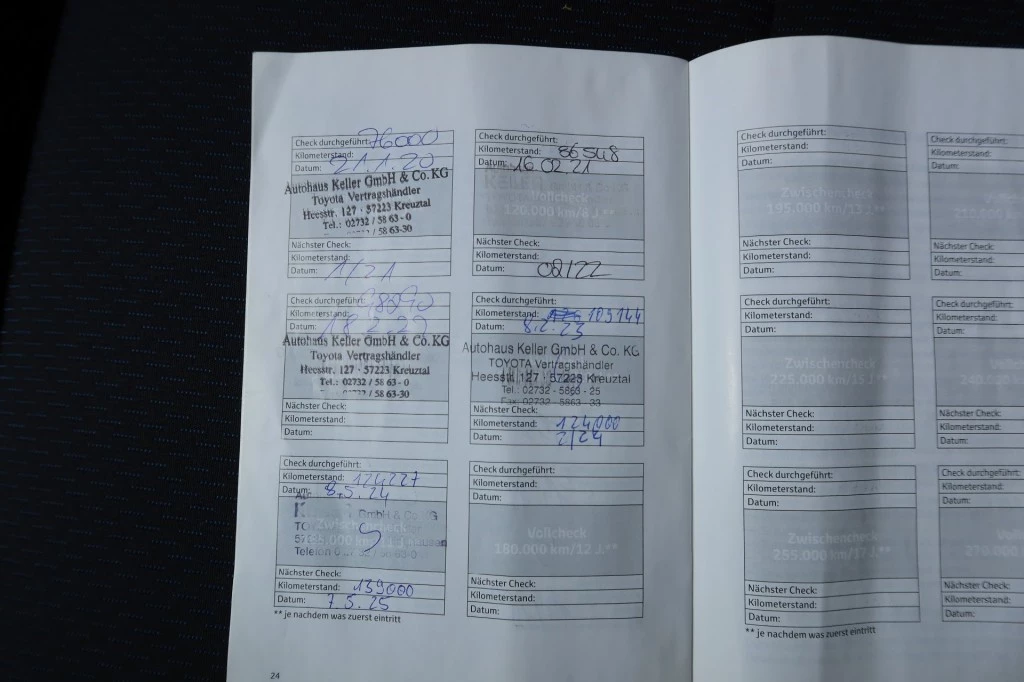 Check durchgeführt: 76000
Kilometerstand:
Datum: 21.1.20
Autohaus Keller GmbH & Co. KG
Toyota Vertragshändler
Heesstr. 127 · 57223 Kreuztal
Tel.: 02732 / 58 63 - 0
02732 / 58 63-30
Nächster Check:
Kilometerstand:
Datum: 1/21
Check durchgeführt:
Kilometerstand: 86548
Datum: 16.02.21
Vollcheck
120.000 km/8 J.**
Nächster Check:
Kilometerstand:
Datum: 02/22
Check durchgeführt:
Kilometerstand:
Datum: 18.2.22
Autohaus Keller GmbH & Co. KG
Toyota Vertragshändler
Heesstr. 127 · 57223 Kreuztal
Tel.: 02732 / 58 63 - 0
02732 / 58 63-30
Nächster Check:
Kilometerstand:
Datum:
Check durchgeführt:
Kilometerstand: 109144
Datum: 8.2.23
Autohaus Keller GmbH & Co. KG
TOYOTA Vertragshändler
Heesstr. 127 · 57223 Kreuztal
Tel.: 02732 - 5863 - 25
Fax: 02732 - 5863 - 33
Nächster Check:
Kilometerstand: 124000
Datum: 2/24
Check durchgeführt:
Kilometerstand: 124227
Datum: 8.5.24
GmbH & Co. KG
Zwischencheck
Telefon
Nächster Check:
Kilometerstand: 139000
Datum: 7.5.25
** je nachdem was zuerst eintritt
Check durchgeführt:
Kilometerstand:
Datum:
Vollcheck
180.000 km/12 J.**
Nächster Check:
Kilometerstand:
Datum:
24
Check durchgeführt:
Kilometerstand:
Datum:
Zwischencheck
195.000 km/13 J.**
Nächster Check:
Kilometerstand:
Datum:
Check durchgeführt:
Kilometerstand:
Datum:
210.000
Nächster Check:
Kilometerstand:
Datum:
Check durchgeführt:
Kilometerstand:
Datum:
Zwischencheck
225.000 km/15 J.**
Nächster Check:
Kilometerstand:
Datum:
Check durchgeführt:
Kilometerstand:
Datum:
Nächster Check:
Kilometerstand:
Datum:
Check durchgeführt:
Kilometerstand:
Datum:
Zwischencheck
255.000 km/17 J.**
Nächster Check:
Kilometerstand:
Datum:
** je nachdem was zuerst eintritt
Check durchgeführt:
Kilometerstand:
Datum:
270.000
Nächster Check:
Kilometerstand:
Datum: